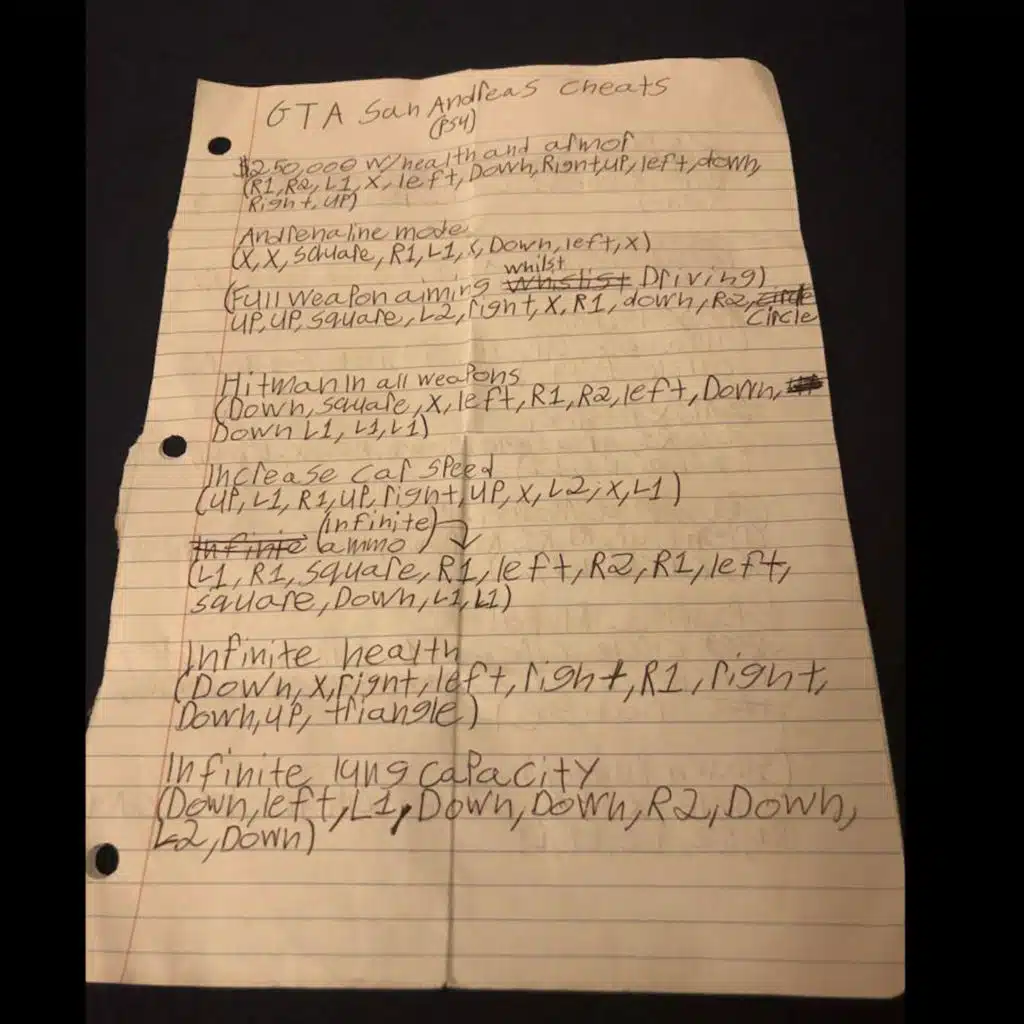 GTA San Andreas Cheats
(PS4)
$250,000 w/health and armor
(R1, R2, L1, X, left, Down, Right, up, left, down,
Right, UP)
Andrenaline mode
(X, X, square, R1, L1, X, Down, left, X)
whilst
(Full weapon aiming Whislist Driving)
UP, UP, square, L2, right, X, R1, down, R2, circle
Circle
Hitman In all weapons
(Down, square, X, left, R1, R2, left, Down,
Down L1, L1, L1)
Increase car speed
(UP, L1, R1, UP, right, UP, X, L2, X, L1)
(infinite)
Infinie ammo
(L1, R1, square, R1, left, R2, R1, left,
square, Down, L1, L1)
Infinite health
(Down, X, right, left, right, R1, right,
Down, up, triangle)
Infinite lung capacity
(Down, left, L1, Down, Down, R2, Down,
L2, Down)